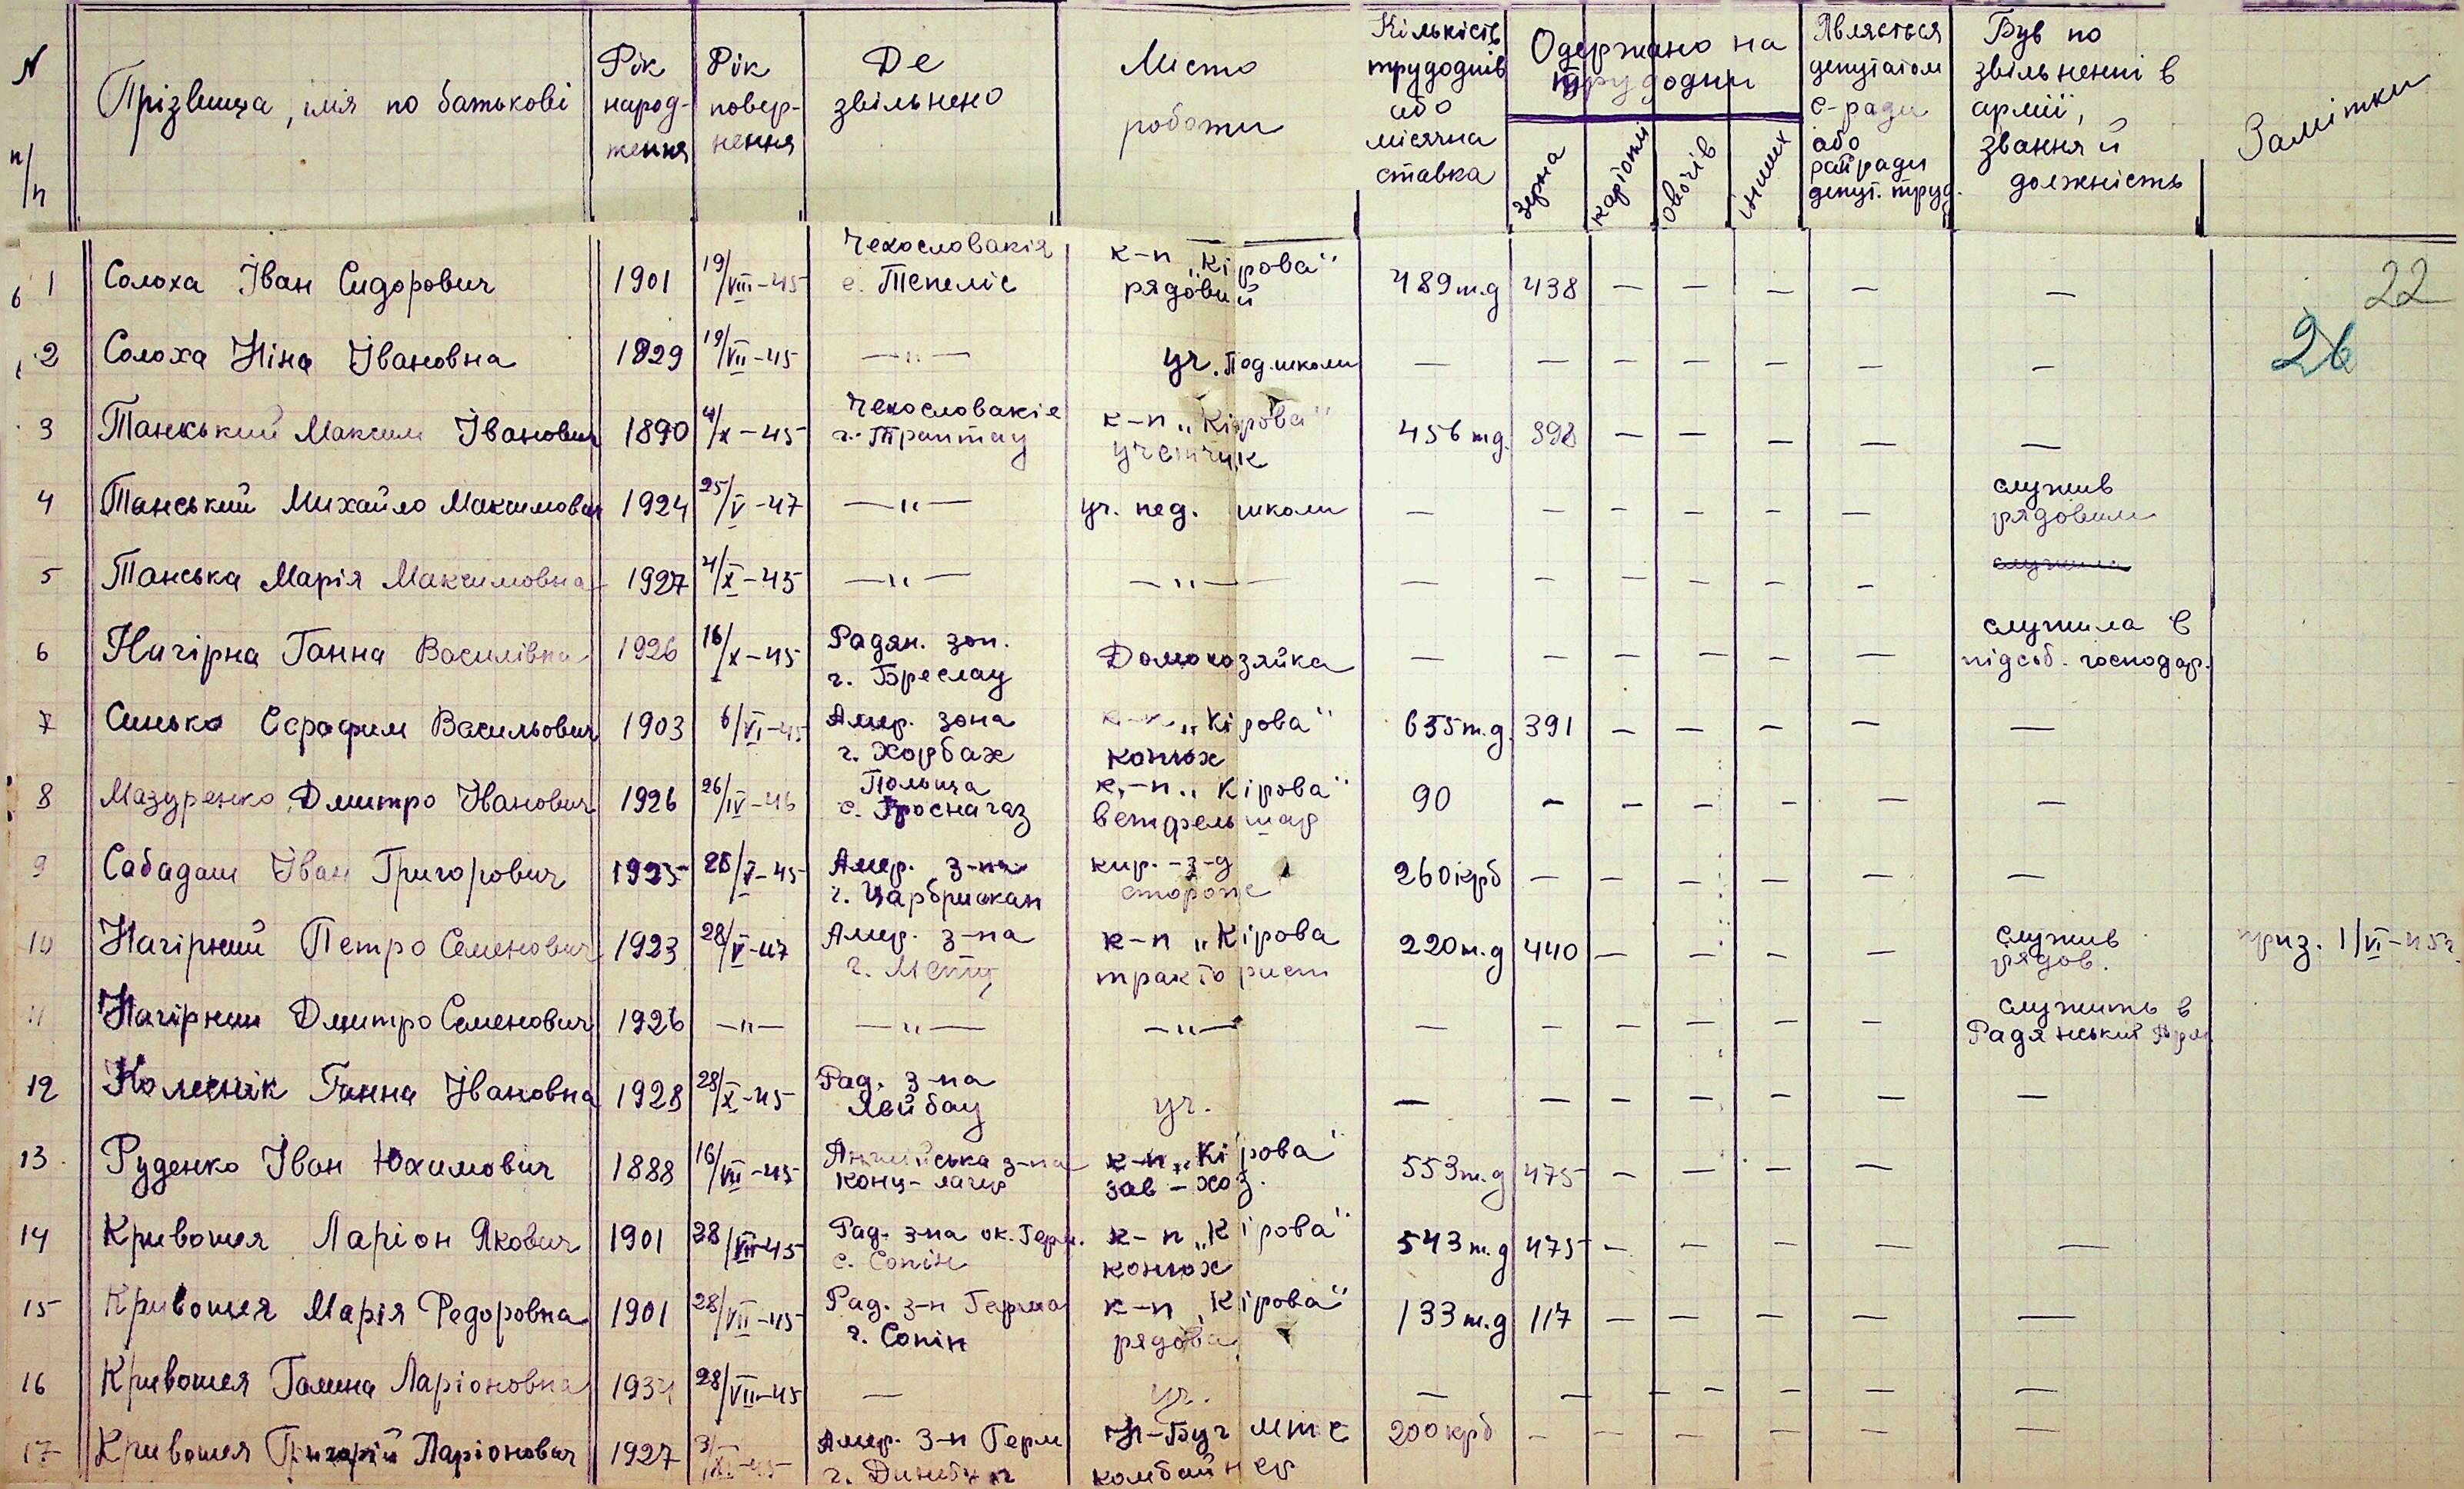 N п/п Прізвища, імя по батькові Рік народження Рік повернення Де звільнено Місто роботи Кількість трудоднів або місячна ставка Одержано на трудодни зерна картоплі овочів інших Являється депутатом с-ради або райради депут. труд. Був по звільненні в армії, звання й должність Замітки
22
26
1 Солоха Іван Сидорович 1901 19/VIII-45 Чехословакія с. Тепеліс к-п „Кірова" рядовий 489 т.д 438 — — — — —
2 Солоха Ніна Івановна 1929 19/VII-45 —"— уч. Под. школи — — — — — — —
3 Танський Максим Іванович 1890 4/X-45 Чехословакіе г. Траптау к-п „Кірова" учетчик 456 т.д. 398 — — — — —
4 Танський Михайло Максимович 1924 25/V-47 —"— уч. пед. школи — — — — — — служив рядовим
5 Танська Марія Максимовна 1927 4/X-45 —"— —"— — — — — — —
6 Нагірна Ганна Василівна 1926 16/X-45 Радян. зон. г. Бреслау Домохозяйка — — — — — — служила в підсоб. господар.
7 Синько Серафим Васильович 1903 6/VI-45 Амер. зона г. Хорбах к-п „Кірова" конюх 635 т.д. 391 — — — — —
8 Мазуренко Дмитро Іванович 1926 26/IV-46 Польша с. Гроснагаз к-п „Кірова" ветфельшар 90 — — — — — —
9 Сабадаш Іван Григорович 1925 25/V-45 Амер. з-на г. Царбрюкан кир. з-д сторож 260 крб — — — — — —
10 Нагірний Петро Семенович 1923 28/V-47 Амер. з-на г. Метц к-п „Кірова тракторист 220 т.д 440 — — — — служив рядов. приз. 1/VI-45г.
11 Нагірний Дмитро Семенович 1926 —"— —"— —"— — — — — — — служить в Радянський Арм
12 Колеснік Ганна Івановна 1928 28/X-45 Рад. з-на Лейбау уч. — — — — — — —
13 Руденко Іван Юхимович 1888 16/VII-45 Англійська з-на конц-лагер к-п „Кірова" зав-хоз. 553 т.д 475 — — — —
14 Кривошея Ларіон Якович 1901 28/VII-45 Рад. з-на ок. Герм. с. Сопін к-п „Кірова" конюх 543 т.д 475 — — — — —
15 Кривошея Марія Федоровна 1901 28/VII-45 Рад. з-н Герма г. Сопін к-п „Кірова" рядова 133 т.д 117 — — — — —
16 Кривошея Галина Ларіоновна 1934 28/VII-45 — уч. — — — — — — —
17 Кривошея Григорій Ларіонович 1927 3/XI-45 Амер. з-н Герм г. Н-Буг мтс комбайнер 200 крб — — — — — —